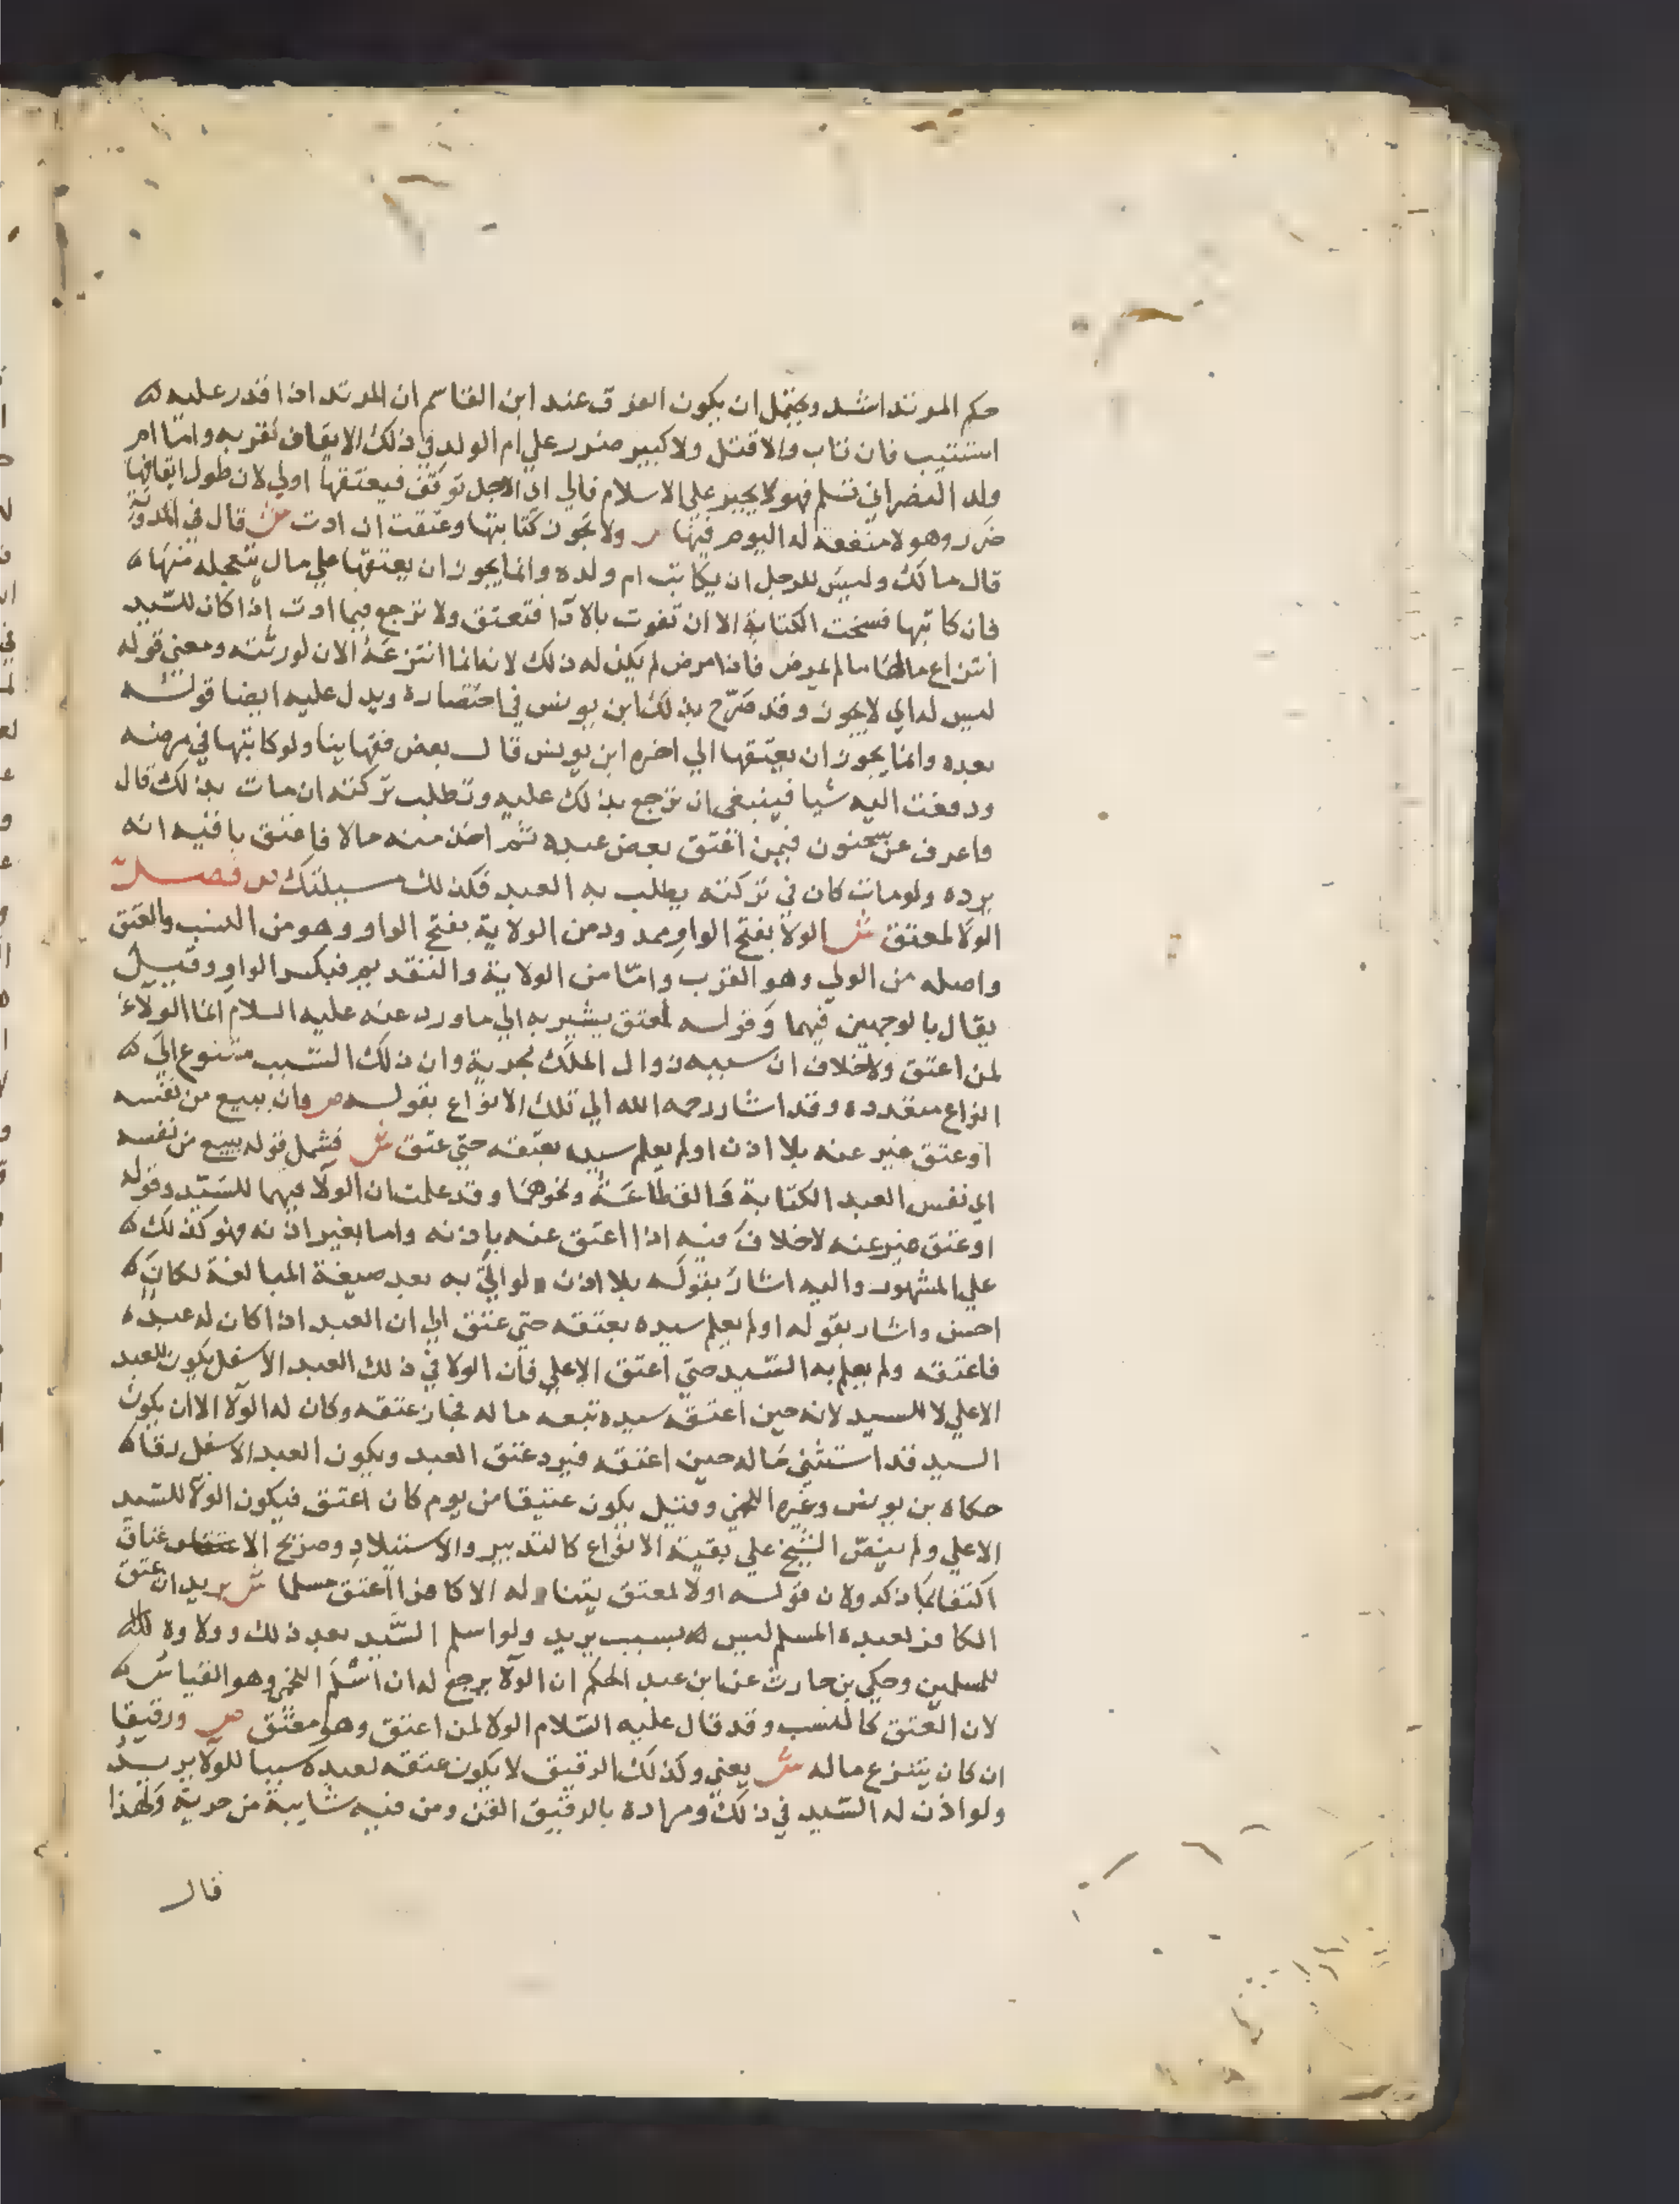 حكم المرتد اشد ويحتمل ان يكون الفرق عند ابن القاسم ان المرتد اذا قدر عليه
استتيب فان تاب والا قتل ولا كبير ضرر علي ام الولد في ذلك الايقاف لقربه واما ام
ولد النصراني تسلم فهو لا يجبر علي الاسلام فالي اي الاجل توقف فيعتقها اولي لان طول ايقافها
ضرر وهو لا منفعة له اليوم فيها ص ولا تجوز كتابتها وعتقت ان ادت ش قال في المدونة
قال مالك وليس للرجل ان يكاتب ام ولده وانما يجوز ان يعتقها علي مال يتعجله منها
فان كاتبها فسخت الكتابة الا ان تفوت بالادا فتعتق ولا ترجع فيما ادت اذا كان للسيد
انتزاع مالها ما لم يمرض فاذا مرض لم يكن له ذلك لانه انما انتزعه الان لورثته ومعني قوله
ليس له اي لا يجوز وقد صرح بذلك ابن يونس في اختصاره ويدل عليه ايضا قوله
بعده وانما يجوز ان يعتقها الي اخره ابن يونس قال بعض فقهاينا ولو كاتبها في مرضه
ودفعت اليه شيا فينبغي ان ترجع بذلك عليه وتطلب تركته ان مات بذلك قال
واعرف عن سحنون فيمن اعتق بعض عبده ثم اخذ منه مالا فاعتق باقيه انه
يرده ولو مات كان في تركته يطلب به العبد فكذلك مسيلتك ص فصل
الولا لمعتق ش الولا بفتح الواو ممدود من الولاية بفتح الواو وهو من النسب والعتق
واصله من الولي وهو القرب واما من الولاية والتقديم فبكسر الواو وقيل
يقال بالوجهين فيهما وقوله لمعتق يشير به الي ما ورد عنه عليه السلام انما الولاء
لمن اعتق ولا خلاف ان سببه زوال الملك بحرية وان ذلك السبب متنوع الي
انواع متعدده وقد اشار رحمه الله الي تلك الانواع بقوله ص وان ببيع من نفسه
او عتق غير عنه بلا اذن او لم يعلم سيده بعتقه حتي عتق ش فشمل قوله ببيع من نفسه
اي نفس العبد الكتابة والقطاعة ونحوهما وقد علمت ان الولا فيهما للسيد وقوله
او عتق غير عنه لا خلاف فيه اذا اعتق عنه باذنه واما بغير اذنه فهو كذلك
علي المشهور واليه اشار بقوله بلا اذن ولو اتي به بعد صيغة المبالغة لكان
احسن واشار بقوله او لم يعلم سيده بعتقه حتي عتق الي ان العبد اذا كان له عبده
فاعتقه ولم يعلم به السيد حتي اعتق الاعلي فان الولا في ذلك العبد الاسفل يكون للعبد
الاعلي لا للسيد لانه حين اعتقه سيده تبعه ماله فجاز عتقه وكان له الولا الا ان يكون
السيد قد استثني ماله حين اعتقه فيرد عتق العبد ويكون العبد الاسفل رقا
حكاه بن يونس وغيره اللخمي وقيل يكون عتيقا من يوم كان اعتق فيكون الولا للسيد
الاعلي ولم ينص الشيخ علي بقية الانواع كالتدبير والاستيلاد وصريح الاعتاق
اكتفا بما ذكر ولان قوله اولا لمعتق يتناوله الا كافرا اعتق مسلما ش يريد ان عتق
الكافر لعبده المسلم ليس بسبب يريد ولو اسلم السيد بعد ذلك وولاوه
للمسلمين وحكي بن حارث عن ابن عبد الحكم ان الولا يرجع له ان اسلم اللخمي وهو القياس
لان العتق كالنسب وقد قال عليه السلام الولا لمن اعتق وهو معتق ص ورقيقا
ان كان ينتزع ماله ش يعني وكذلك الرقيق لا يكون عتقه لعبده سببا للولا يريد
ولو اذن له السيد في ذلك ومراده بالرقيق القن ومن فيه شايبة من حرية ولهذا
قال